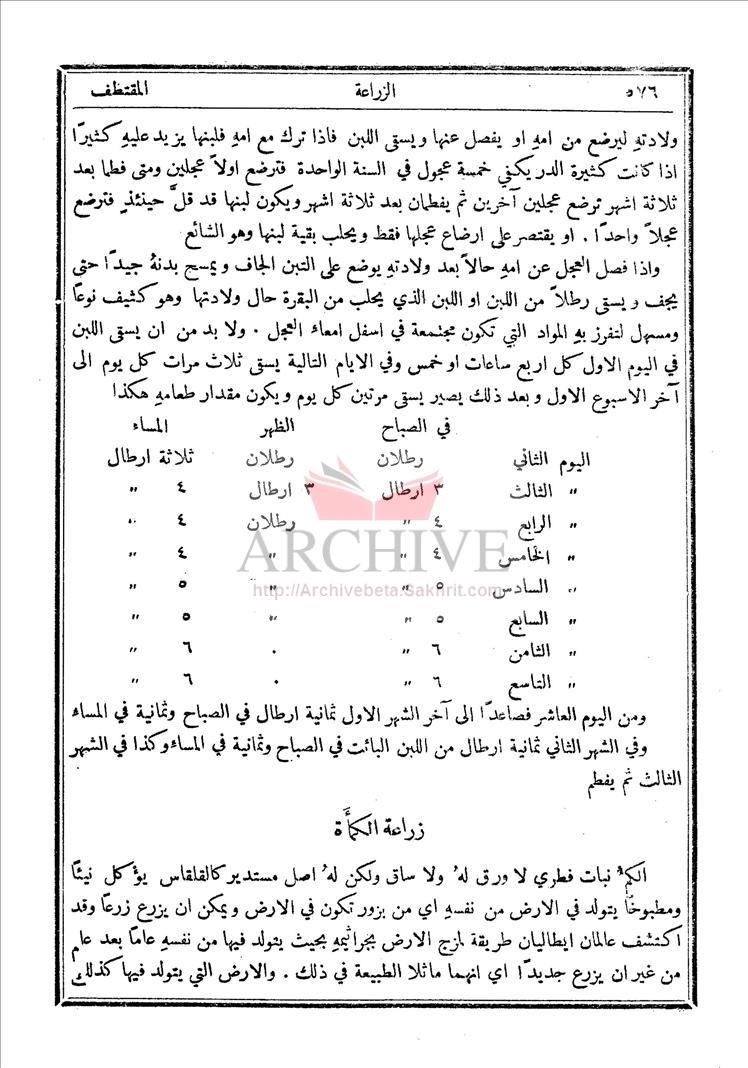 ٥٧٦ الزراعة المقتطف
ولادتهِ ليرضع من امهِ او يفصل عنها ويستى اللبن فاذا ترك مع امهِ فلبنها يزيد عليهِ كثيرًا
اذا كانت كثيرة الدر يكفي خمسة عجول في السنة الواحدة فترضع اولاً عجلين ومتى فطما بعد
ثلاثة اشهر ترضع عجلين آخرين ثم يفطمان بعد ثلاثة اشهر ويكون لبنها قد قلَّ حينئذٍ فترضع
عجلاً واحدًا . او يقتصر على ارضاع عجلها فقط ويحلب بقية لبنها وهو الشائع
واذا فصل العجل عن امهِ حالاً بعد ولادتهِ يوضع على التبن الجاف ويمسح بدنهُ جيدًا حتى
يجف ويستى رطلاً من اللبن او اللبن الذي يحلب من البقرة حال ولادتها وهو كثيف نوعًا
ومسهل لتفرز بهِ المواد التي تكون مجتمعة في اسفل امعاء العجل . ولا بد من ان يستى اللبن
في اليوم الاول كل اربع ساعات او خمس وفي الايام التالية يستى ثلاث مرات كل يوم الى
آخر الاسبوع الاول وبعد ذلك يصير يستى مرتين كل يوم ويكون مقدار طعامهِ هكذا
في الصباح الظهر المساء
اليوم الثاني رطلان رطلان ثلاثة ارطال
〃 الثالث ٣ ارطال ٣ ارطال ٤ 〃
〃 الرابع ٤ 〃 رطلان ٤ 〃
〃 الخامس ٤ 〃 〃 ٤ 〃
〃 السادس ٥ 〃 〃 ٥ 〃
〃 السابع ٥ 〃 〃 ٥ 〃
〃 الثامن ٦ 〃 ٠ ٦ 〃
〃 التاسع ٦ 〃 ٠ ٦ 〃
ARCHIVE
http://Archivebeta.Sakhrit.com
ومن اليوم العاشر فصاعدًا الى آخر الشهر الاول ثمانية ارطال في الصباح وثمانية في المساء
وفي الشهر الثاني ثمانية ارطال من اللبن البائت في الصباح وثمانية في المساء وكذا في الشهر
الثالث ثم يفطم
زراعة الكمأَة
الكمءُ نبات فطري لا ورق لهُ ولا ساق ولكن لهُ اصل مستدير كالقلقاس يؤكل نيئًا
ومطبوخًا يتولد في الارض من نفسهِ اي من بزور تكون في الارض ويمكن ان يزرع زرعًا وقد
اكتشف عالمان ايطاليان طريقة لمزج الارض بجراثيمهِ بحيث يتولد فيها من نفسهِ عامًا بعد عام
من غير ان يزرع جديدًا اي انهما ماثلا الطبيعة في ذلك . والارض التي يتولد فيها كذلك